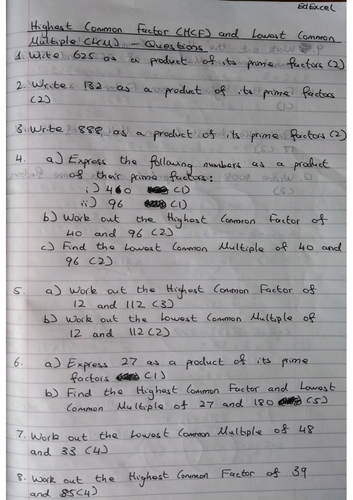 EdExcel
Highest Common Factor (HCF) and Lowest Common
Multiple (LCM) - Questions
1. Write 625 as a product of its prime factors (2)
2. Write 132 as a product of its prime factors
(2)
3. Write 888 as a product of its prime factors (2)
4. a) Express the following numbers as a product
of their prime factors:
i) 40 (1)
ii) 96 (1)
b) Work out the Highest Common Factor of
40 and 96 (2)
c) Find the Lowest Common Multiple of 40 and
96 (2)
5. a) Work out the Highest Common Factor of
12 and 112 (3)
b) Work out the Lowest Common Multiple of
12 and 112 (2)
6. a) Express 27 as a product of its prime
factors (1)
b) Find the Highest Common Factor and Lowest
Common Multiple of 27 and 180 (5)
7. Work out the Lowest Common Multiple of 48
and 33 (4)
8. Work out the Highest Common Factor of 39
and 85 (4)